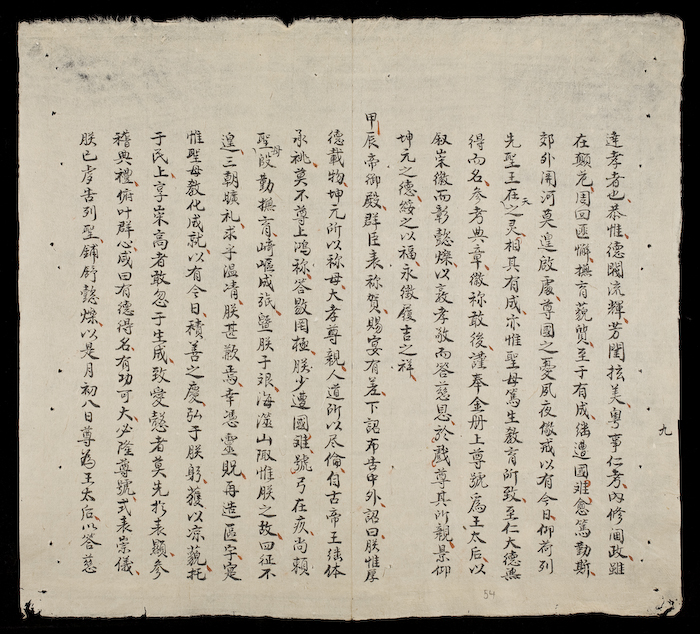 達孝者也恭惟德閥流輝芳閨抜美粤事仁考內修閫政雖
在顛危周回匪懈撫育藐質至于有成継遭國难愈篤勤斯
郊外関河莫遑啟處尊國之憂夙夜儆戒以有今日仰荷列
先聖王在天之灵相其有成亦惟聖母篤生教育所致至仁大德無
得而名參考典章徽称敢後謹奉金册上尊號為王太后以
叙崇徽而彰懿爍以寡孝敬而答慈恩於戲尊其所親景仰
坤元之德綏之以福永徽履吉之祥
甲辰帝御殿群臣表称賀賜宴有差下詔布告中外詔曰朕惟厚
德載物坤元所以称母大孝尊親人道所以尽倫自古帝王継体
承祧莫不尊上鴻称答斁罔極朕少遭國难號弓在疚尚頼
聖母殷勤撫育崎嶇成祇曁朕于艰海澨山陬惟朕之故曰征不
遑三朝曠礼求乎温凊朕甚歉焉幸憑靈貺再造區宇寔
惟聖母教化成就以有今日積善之慶弘于朕躬獲以凉藐托
于民上享崇高者敢忽于生成致愛慤者莫先扵表顕參
稽典禮俯叶群心咸曰有德得名有功可大必隆尊號式表崇儀
朕已虔告列聖鋪舒懿爍以是月初八日尊為王太后以答慈
九
54